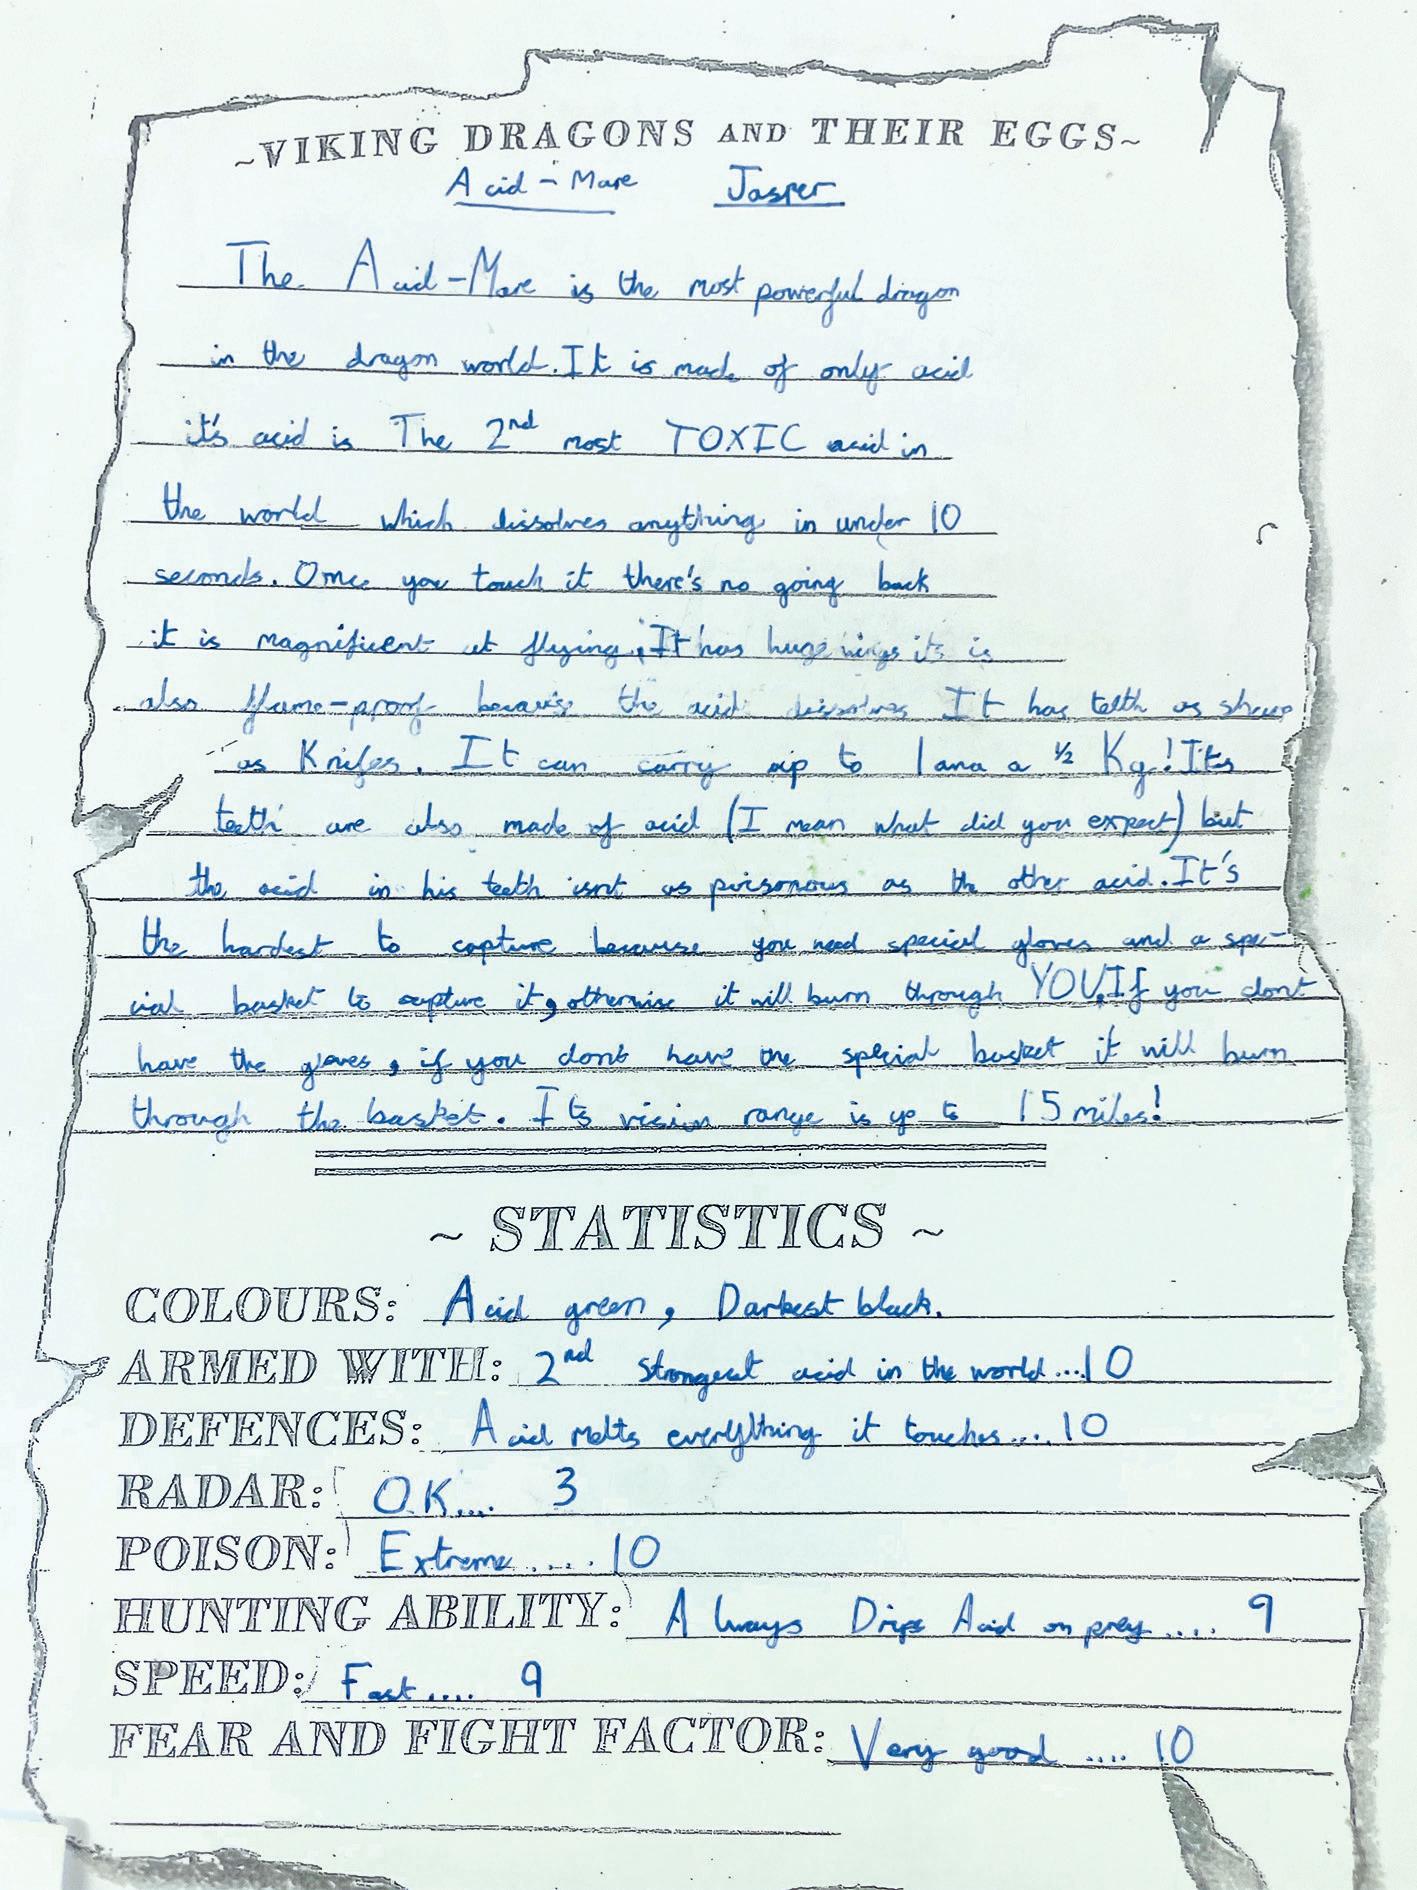 ~VIKING DRAGONS AND THEIR EGGS~
Acid-Mare Jasper
The Acid-Mare is the most powerful dragon
in the dragon world. It is made of only acid
it's acid is The 2nd most TOXIC acid in
the world which dissolves anything in under 10
seconds. Once you touch it there's no going back
it is magnificent at flying. It has huge wings its is
also flame-proof because the acid dissolves It has teeth as sharp
as Knifes. It can carry up to 1 and a ½ Kg! Its
teeth are also made of acid (I mean what did you expect) but
the acid in his teeth isnt as poisonous as the other acid. It's
the hardest to capture because you need special gloves and a spe-
cial basket to capture it, otherwise it will burn through YOU. If you dont
have the gloves, if you dont have the special basket it will burn
through the basket. Its vision range is up to 15 miles!
~ STATISTICS ~
COLOURS: Acid green, Darkest black.
ARMED WITH: 2nd strongest acid in the world...10
DEFENCES: Acid melts everything it touches....10
RADAR: OK.... 3
POISON: Extreme.....10
HUNTING ABILITY: Always Drips Acid on prey.... 9
SPEED: Fast.... 9
FEAR AND FIGHT FACTOR: Very good .... 10